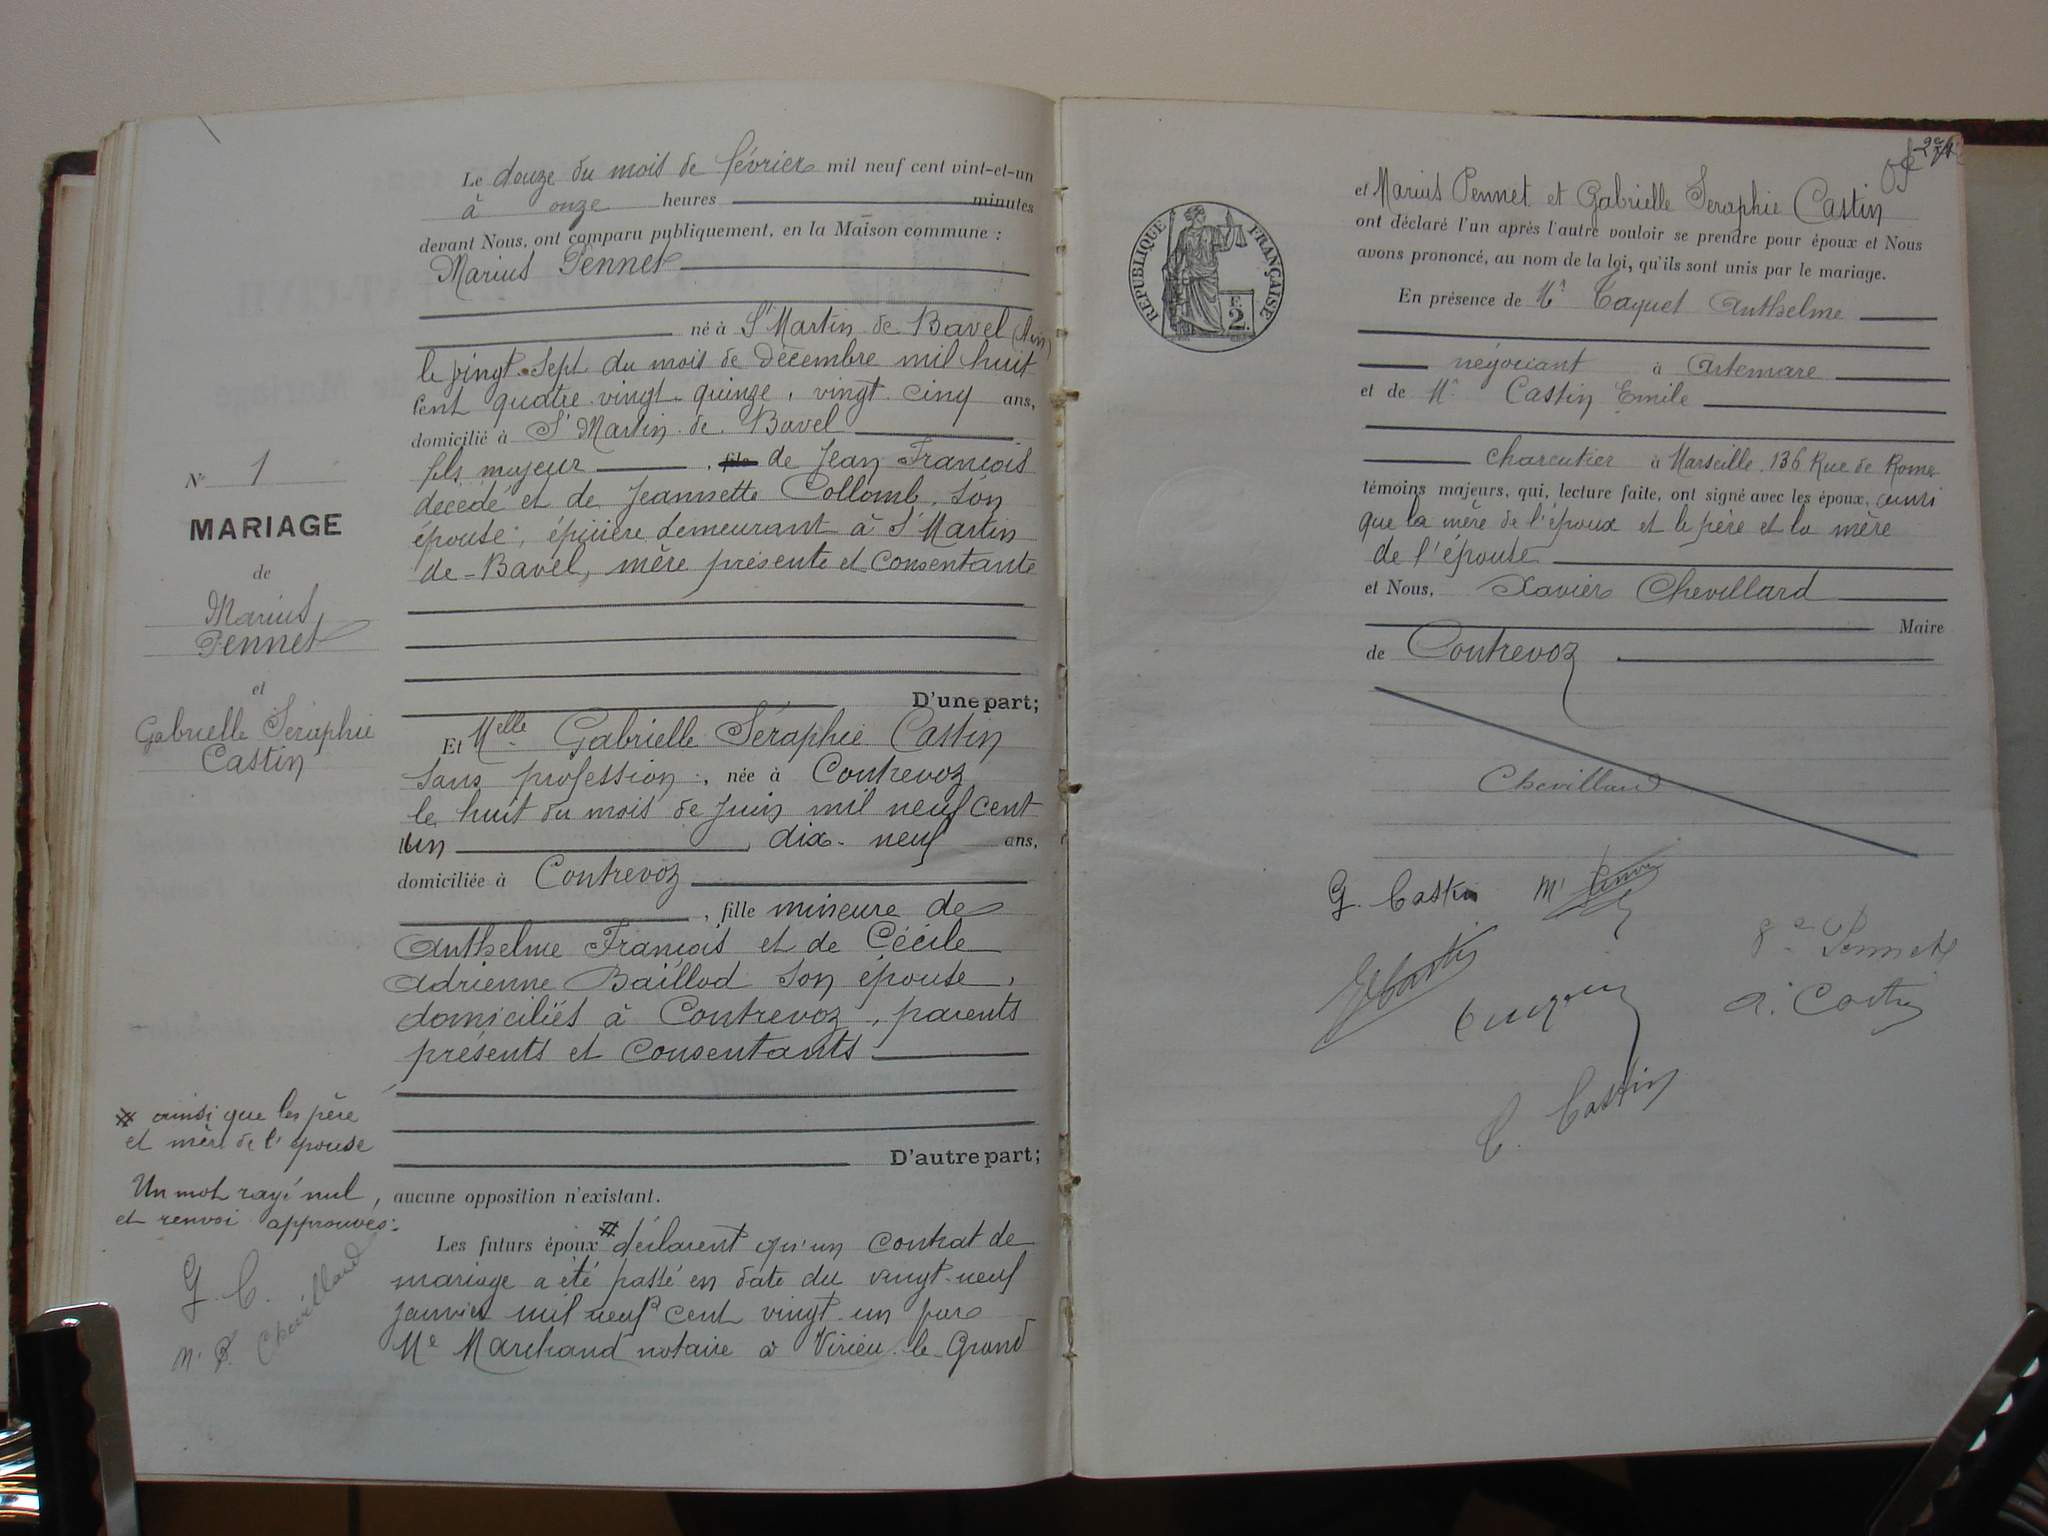 Le douze du mois de février mil neuf cent vint-et-un
à onze heures minutes
devant Nous, ont comparu publiquement, en la Maison commune :
Marius Pennet
né à St Martin de Bavel (Ain)
le vingt-sept du mois de décembre mil huit
cent quatre-vingt-quinze, vingt-cinq ans,
domicilié à St Martin-de-Bavel
fils majeur , fils de Jean François
décédé et de Jeannette Collomb, son
épouse, épicière demeurant à St Martin
de-Bavel, mère présente et consentante
D'une part;
Et Melle Gabrielle Séraphie Castin
sans profession, née à Contrevoz
le huit du mois de juin mil neuf cent
un , dix-neuf ans,
domiciliée à Contrevoz
, fille mineure de
Anthelme François et de Cécile
Adrienne Baillod son épouse,
domiciliés à Contrevoz, parents
présents et consentants
D'autre part;
aucune opposition n'existant.
Les futurs époux # déclarent qu'un contrat de
mariage a été passé en date du vingt-neuf
janvier mil neuf cent vingt-un par
Me Marchand notaire à Virieu-le-Grand
No 1
MARIAGE
de
Marius
Pennet
et
Gabrielle Séraphie
Castin
# ainsi que les père
et mère de l'épouse
Un mot rayé nul,
et renvoi approuvés :
G. C.
Chevillard
M. P.
RÉPUBLIQUE FRANÇAISE
2
et Marius Pennet et Gabrielle Seraphie Castin
ont déclaré l'un après l'autre vouloir se prendre pour époux et Nous
avons prononcé, au nom de la loi, qu'ils sont unis par le mariage.
En présence de Mr Taquet Anthelme
négociant à Artemare
et de Mr Castin Emile
charcutier à Marseille 136 Rue de Rome
témoins majeurs, qui, lecture faite, ont signé avec les époux, ainsi
que la mère de l'époux et le père et la mère
de l'épouse
et Nous, Xavier Chevillard
Maire
de Contrevoz
Chevillard
G. Castin
Pennet
E Castin
A. Castin
C. Castin